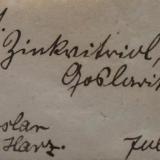 Zinkvitriol,
Goslarit
Goslar
Harz. Jul